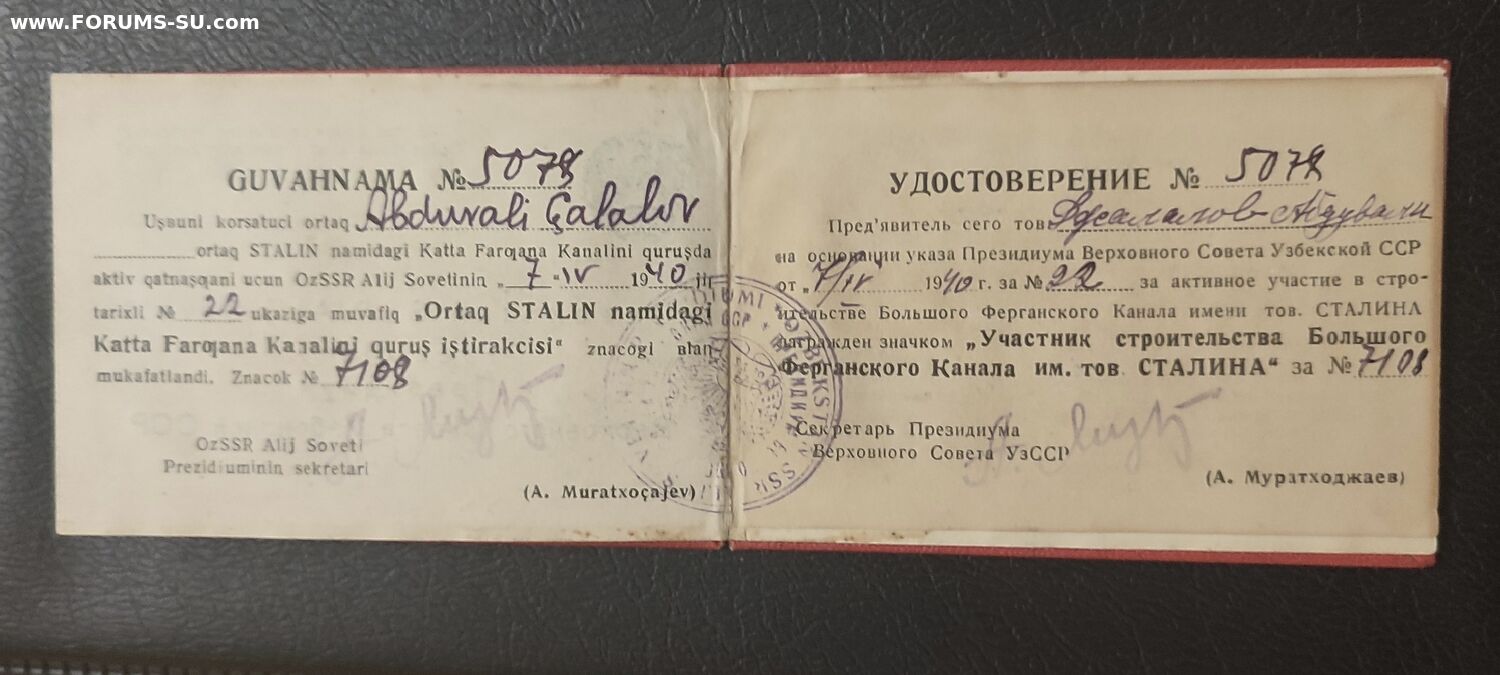 www.FORUMS-SU.com
GUVAHNAMA № 5078
Uşʙuni korsatuci ortaq Abduvali Çalalov
ortaq STALIN namidagi Katta Farƣana Kanalini quruşda
aktiv qatnaşqani ucun OzSSR Alij Sovetinin „ 7 “ IV 1940 jil
tarixli № 22 ukaziga muvafiq „Ortaq STALIN namidagi
Katta Farƣana Kanalini quruş iştirakcisi“ znacogi ʙilan
mukafatlandi. Znacok № 7108
OzSSR Alij Soveti
Prezidiuminin sekretari
(A. Muratxoçajev)
УДОСТОВЕРЕНИЕ № 5078
Пред'явитель сего тов. Джалалов Абдували
на основании указа Президиума Верховного Совета Узбекской ССР
от „ 7/IV 1940 г. за № 22 за активное участие в стро-
ительстве Большого Ферганского Канала имени тов. СТАЛИНА
награжден значком „Участник строительства Большого
Ферганского Канала им. тов. СТАЛИНА“ за № 7108
Секретарь Президиума
Верховного Совета УзССР
(А. Муратходжаев)